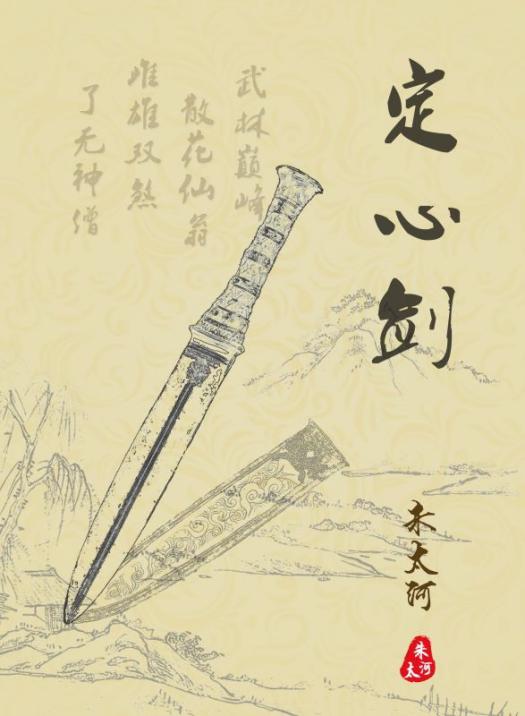 定心剑
朱太河
朱太河
武林巅峰
散花仙翁
雌雄双煞
了无神僧